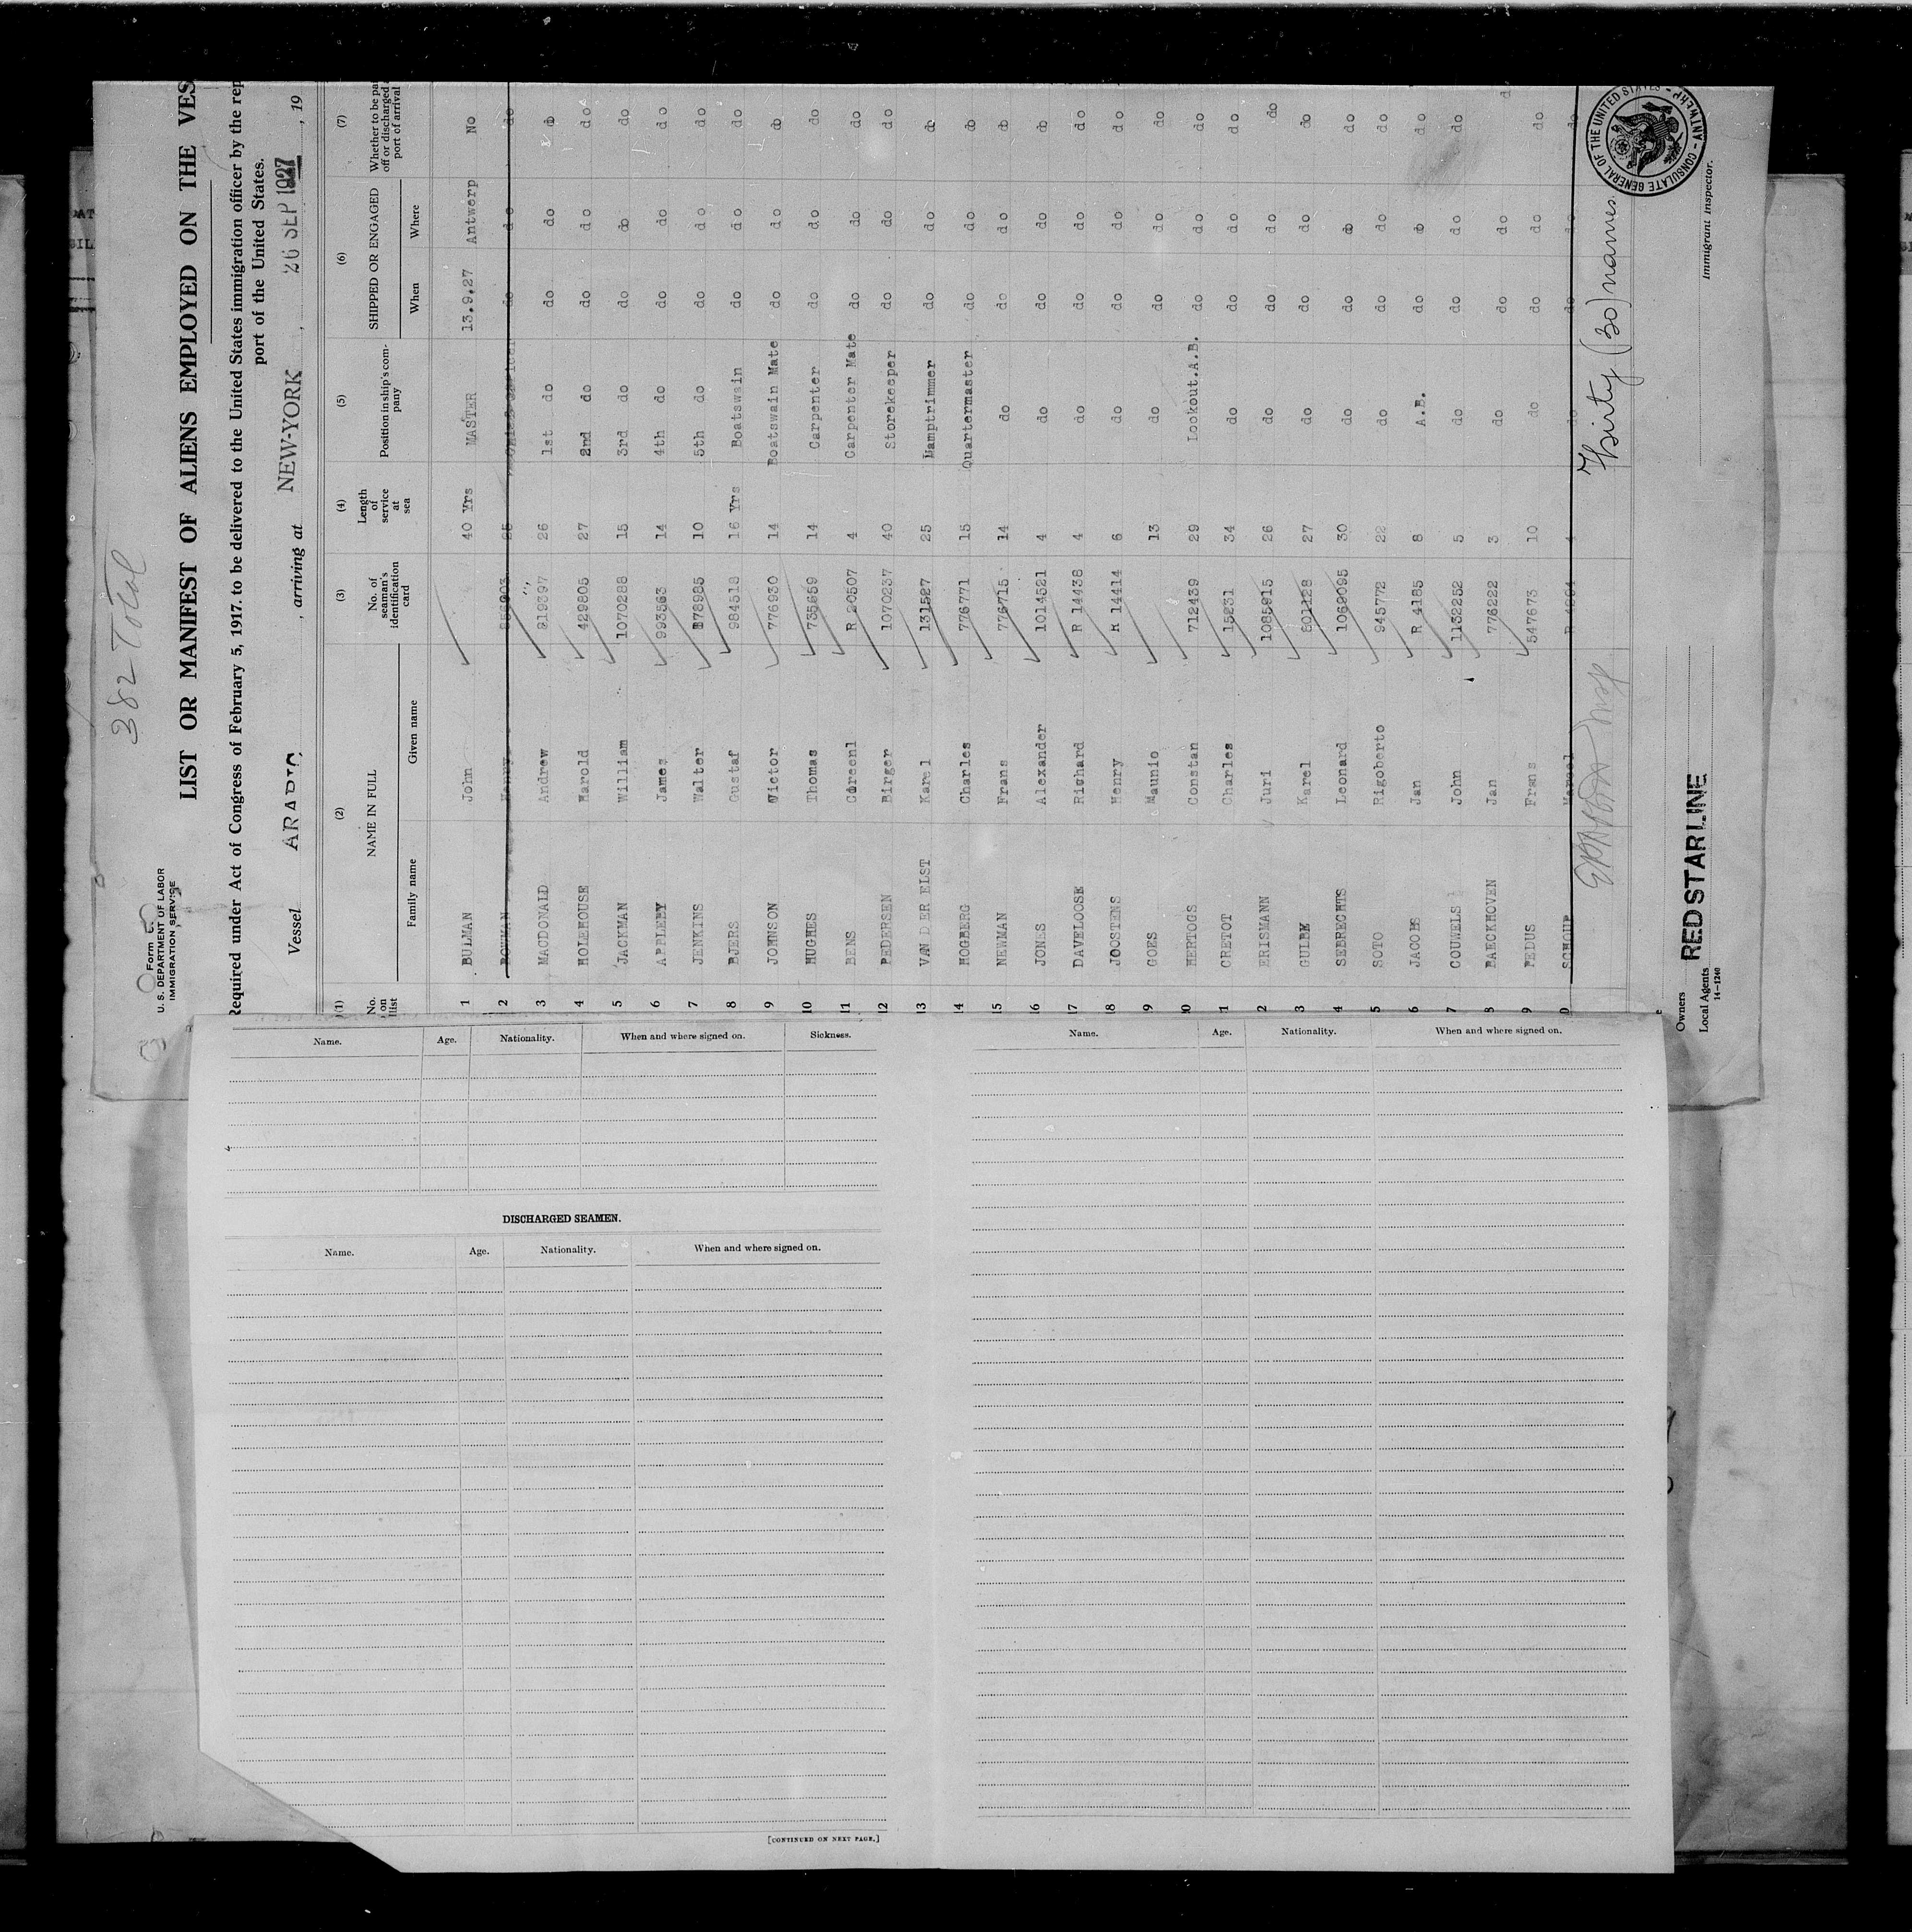 382 Total
Form 680
U. S. DEPARTMENT OF LABOR
IMMIGRATION SERVICE
LIST OR MANIFEST OF ALIENS EMPLOYED ON THE VES
Required under Act of Congress of February 5, 1917, to be delivered to the United States immigration officer by the rep
port of the United States.
Vessel ARABIC, arriving at NEW-YORK, 26 SEP 1927, 19
(1) (2) (3) (4) (5) (6) (7)
No. on list NAME IN FULL Family name Given name No. of seaman's identification card Length of service at sea Position in ship's company SHIPPED OR ENGAGED When Where Whether to be pa off or discharged port of arrival
1 BULMAN John 40 Yrs MASTER 13.9.27 Antwerp No
2 BOWMAN Henry 856903 25 do do do
3 MACDONALD Andrew 919397 26 1st do do do do
4 HOLEHOUSE Harold 429805 27 2nd do do do do
5 JACKMAN William 1070288 15 3rd do do do do
6 APPLEBY James 993563 14 4th do do do do
7 JENKINS Walter 878985 10 5th do do do do
8 BJERS Gustaf 984518 16 Yrs Boatswain do do do
9 JOHNSON Victor 776930 14 Boatswain Mate do do do
10 HUGHES Thomas 735659 14 Carpenter do do do
11 BENS R 20507 4 Carpenter Mate do do do
12 PEDERSEN Birger 1070237 40 Storekeeper do do do
13 VAN DER ELST Karel 131527 25 Lamptrimmer do do do
14 HOGBERG Charles 776771 15 Quartermaster do do do
15 NEWMAN Frans 776715 14 do do do do
16 JONES Alexander 1014521 4 do do do do
17 DAVELOOSE Richard R 14438 4 do do do do
18 JOOSTENS Henry R 14414 6 do do do do
9 GOES Maunio 13 do do do do
0 HERTOGS Constan 712439 29 Lookout.A.B. do do do
1 CRETOT Charles 15231 34 do do do do
2 ERISMANN Juri 1085915 26 do do do do
3 GULBE Karel 801128 27 do do do do
4 SEBRECHTS Leonard 1069095 30 do do do do
5 SOTO Rigoberto 945772 22 do do do do
6 JACOBS Jan R 4185 8 A.B. do do do
7 COUWELS John 1132252 5 do do do do
8 BAECKHOVEN Jan 776222 3 do do do d
9 PEDUS Frans 547673 10 do do do do
0 SCHOUP Marcel 4 do do do do
Thirty (30) names
CONSULATE GENERAL OF THE UNITED STATES - ANTWERP
Immigrant Inspector.
Owners
Local Agents RED STAR LINE
14-1240
Name. Age. Nationality. When and where signed on. Sickness.
DISCHARGED SEAMEN.
Name. Age. Nationality. When and where signed on.
[CONTINUED ON NEXT PAGE.]
Name. Age. Nationality. When and where signed on.